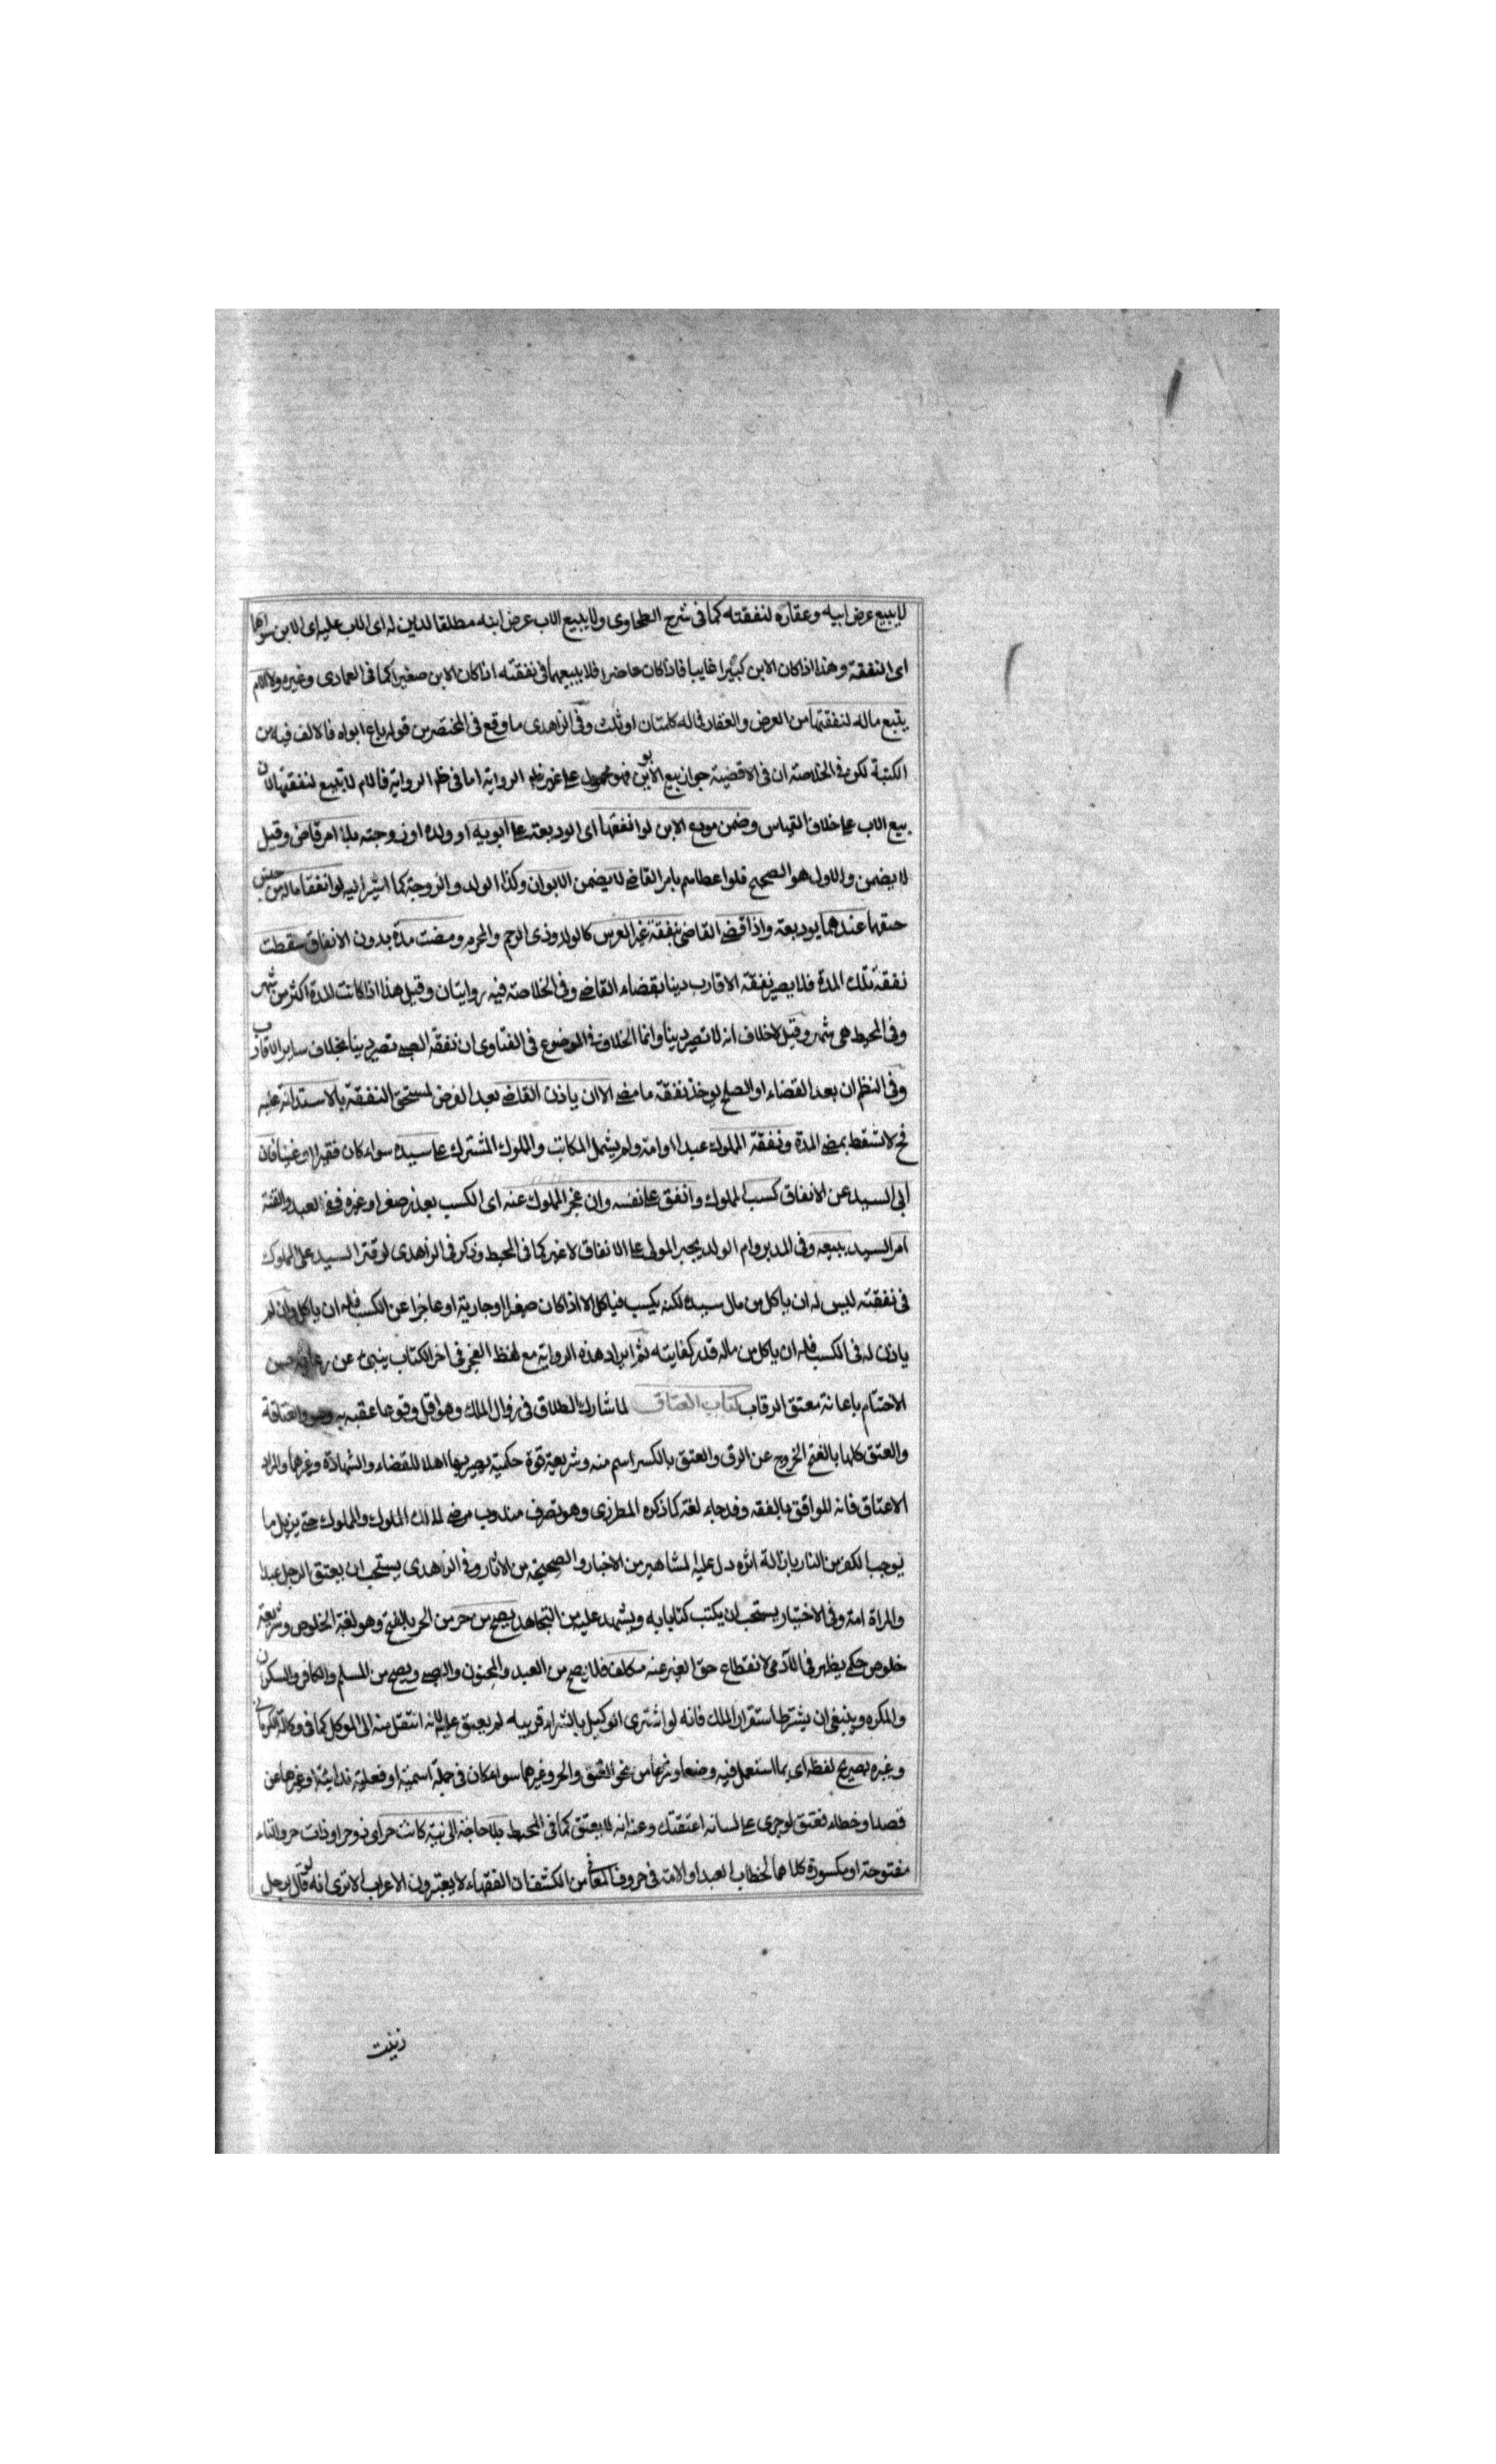 لا يبيع عرض ابيه وعقاره لنفقته كما فى شرح الطحاوى ولا يبيع الاب عرض ابنه مطلقا لدين له اى الاب عليه اى الابن سواها
اى النفقة وهذا اذا كان الابن كبيرا غايبا فاذا كان حاضرا فلا يبيعهما فى نفقته اذا كان الابن صغيرا كما فى العمادى وغيره ولا الام
يبيع ماله لنفقتها من العرض والعقار فما له كلمتان او ثلث وفى الزاهدى ما وقع فى المختصر من قوله باع ابواه فالالف فيه من
الكتبة لكن فى الخلاصة ان فى الاقضية جواز بيع الابوين فهو محمول على غير ظهر الرواية اما فى ظهر الرواية فالام لا تبيع لنفقتها لان
بيع الاب على خلاف القياس وضمن مودع الابن لو انفقها اى الوديعة على ابويه او ولده او زوجته بلا امر قاض وقيل
لا يضمن والاول هو الصحيح فلو اعطاهم بامر القاضى لا يضمن الابوان وكذا الولد والزوجة كما اشير اليه لو انفقا ماله من جنس
حقهما عندهما بوديعة واذا قضى القاضى بنفقة غير العرس كالولد وذى الرحم والمحرم ومضت مدة بدون الانفاق سقطت
نفقة تلك المدة فلا يصير نفقة الاقارب دينا بقضاء القاضى وفى الخلاصة فيه روايتان وقيل هذا اذا كانت المدة اكثر من شهر
وفى المحيط هى شهر وقيل لا خلاف انه لا تصير دينا وانما الخلاف فى الموضوع فى الفتاوى ان نفقة الصبى تصير دينا بخلاف ساير الاقارب
وفى النظم ان بعد القضاء او الصلح يوخذ نفقة ما مضى الا ان ياذن القاضى بعد الفرض لمستحق النفقة بالاستدانة عليه
فح لا تسقط بمضى المدة ونفقة المملوك عبدا او امة ولم يشمل المكاتب والمملوك المشترك على سيده سواء كان فقيرا او غنيا فان
ابى السيد عن الانفاق كسب المملوك وانفق على نفسه وان عجز المملوك عنه اى الكسب بعذر صغر او غيره ففى العبد والقنة
امر السيد ببيعه وفى المدبر وام الولد يجبر المولى على الانفاق لا غير كما فى المحيط وذكر فى الزاهدى لو قتر السيد على المملوك
فى نفقته ليس له ان ياكل من مال سيده لكنه يكسب فياكل الا اذا كان صغيرا او جارية او عاجزا عن الكسب فله ان ياكل وان لم
ياذن له فى الكسب فله ان ياكل من ماله قدر كفايته ثم ايراد هذه الرواية مع لفظ العجز فى اخر الكتاب ينبئ عن رعاية حسن
الاختتام باعانة معتق الرقاب كتاب العتاق لما شارك الطلاق فى زوال الملك وهو اقل وقوعا عقبه به وهو والعتاقة
والعتق كلها بالفتح الخروج عن الرق والعتق بالكسر اسم منه وشريعة قوة حكمية يصير بها اهلا للقضاء والشهادة وغيرهما والمراد
الاعتاق فانه الموافق بالفقه وقد جاء لغة كما ذكره المطرزى وهو تصرف مندوب مرضى لمالك المملوك والمملوك حتى يزيل ما
يوجب الكفر من النار بازالة اثره دل عليه المشاهير من الاخبار والصحيحة من الاثار وفى الزاهدى يستحب ان يعتق الرجل عبدا
والمراة امة وفى الاختيار يستحب ان يكتب كتابا به ويشهد عليه من التجاحد يصح من حر من الحر بالفتح وهو لغة الخلوص وشريعة
خلوص حكمى يظهر فى الآدمى لانقطاع حق الغير عنه مكلف فلا يصح من العبد والمجنون والصبى ويصح من المسلم والكافر والسكران
والمكره وينبغى ان يشترط استقرار الملك فانه لو اشترى الوكيل بالشراء قريبه لم يعتق عليه لانه انتقل منه الى الموكل كما فى وكالة الكرمانى
وغيره بصريح لفظه اى بما استعمل فيه وضعا وشرعا من نحو العتق والحر وغيرهما سواء كان فى جملة اسمية او فعلية ندائية او غيرها عن
قصد او خطاء فعتق لو جرى على لسانه اعتقتك وعنه انه لا يعتق كما فى المحيط بلا حاجة الى نية كانت حر او ذو حر او ذات حر والتاء
مفتوحة او مكسورة كلاهما لخطاب العبد او الامة فى حروف المعانى من الكشف ان الفقهاء لا يعتبرون الاعراب الا ترى انه لو قال رجل
زنيت